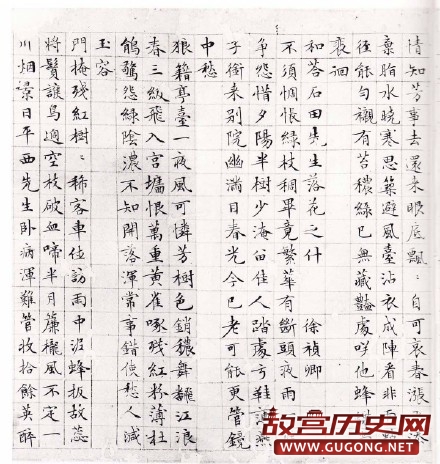 情知芳事去還来眼底飄〻自可哀春漲添
棄脂水曉寒思築避風臺沾衣成陣看非雨
徑能勻襯有苔穠綠已無藏豔處咲他蜂
裵徊
和荅石田先生落花之什 徐禎卿
不須惆悵綠枝稠畢竟繁華有斷頭夜雨
爭怨惜夕陽半樹少淹留佳人踏處弓鞋燕
子銜来別院幽滿目春光今已老可能更管鏡
中愁
狼籍亭臺一夜風可憐芳樹色銷穠舞翻江浪
春三級飛入宮墻恨萬重黃雀啄殘紅粉薄杜
鵑驚怨綠陰濃不知開落渾常事錯使愁人減
玉容
門掩殘紅樹〻稀客車住訪雨中泥蜂扳故蕊
將鬚護鳥過空枝破血啼半月簾櫳風不定一
川烟景日平西先生臥病渾難管收拾餘英醉
故宫历史网
www.GUGONG.NET